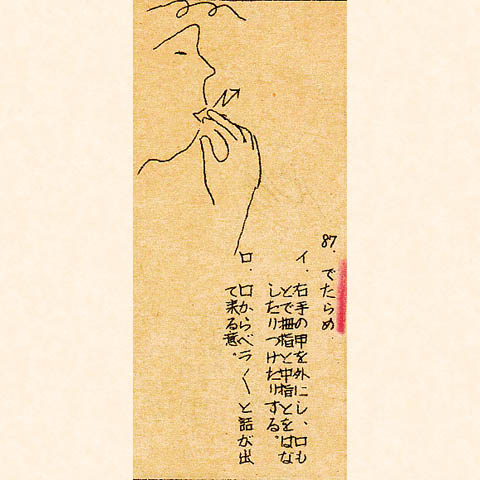 87. でたらめ.
イ. 右手の甲を外にし、口も
とで拇指と中指とをはな
したりつけたりする。
ロ. 口からベラ〱と話が出
て来る意。